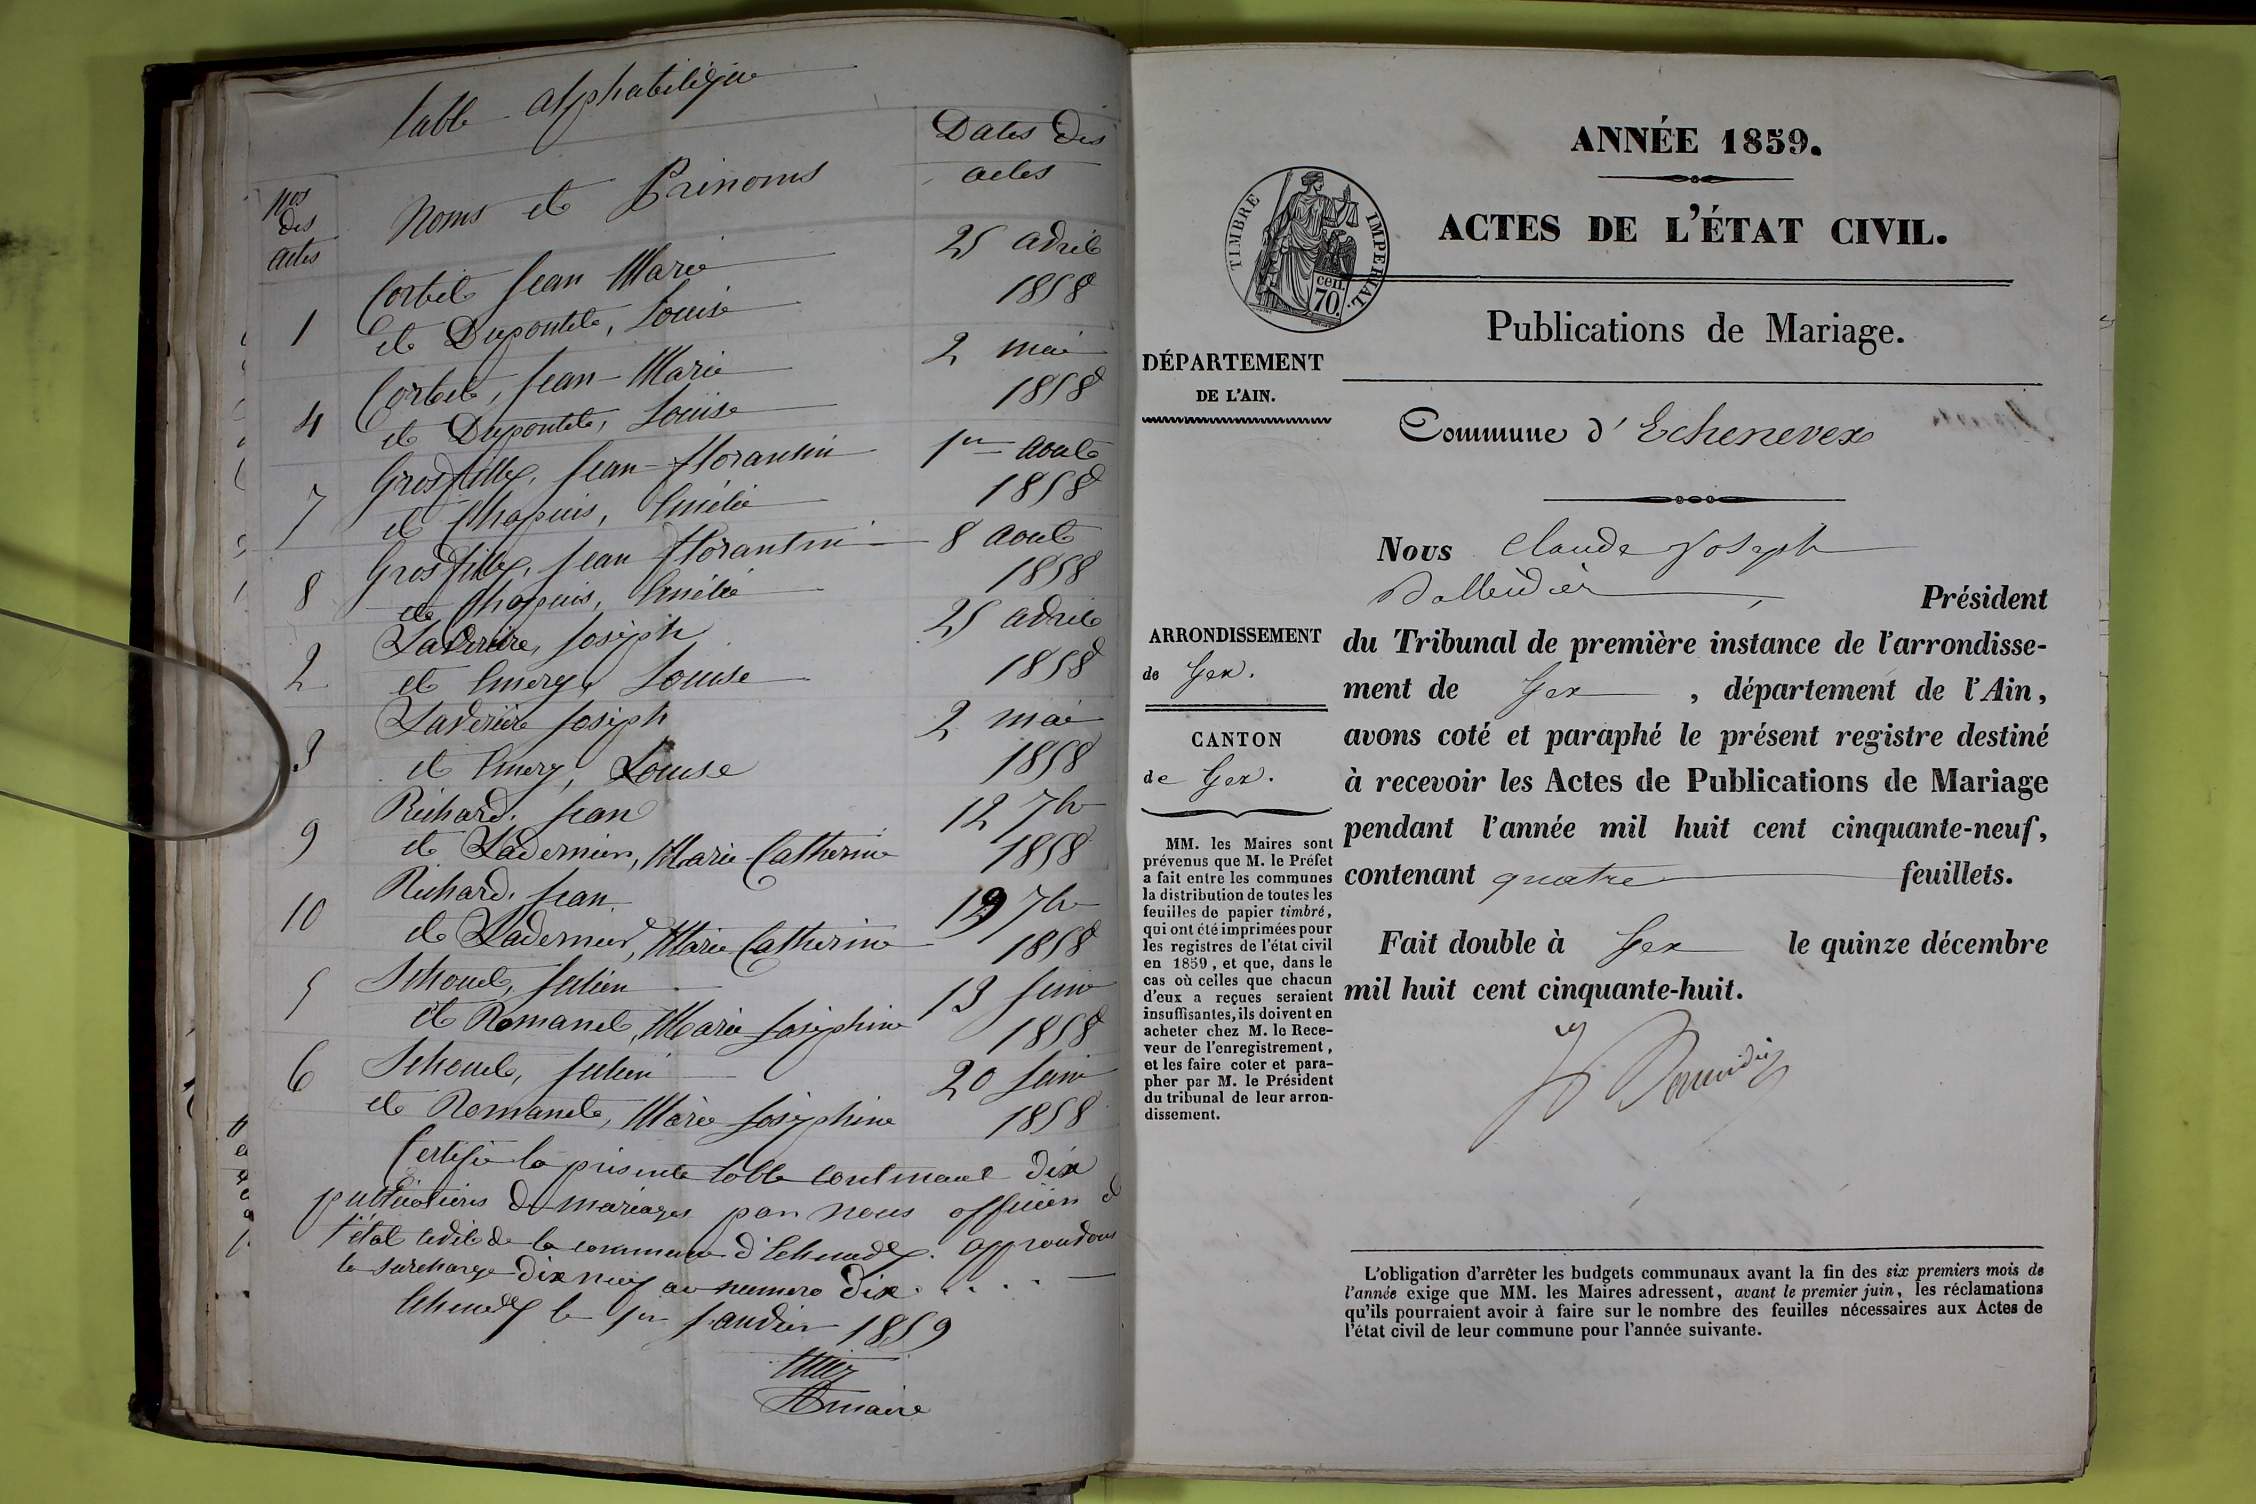 table alphabétique
Nos
des
actes
Noms et Prénoms
Dates des
actes
1
Corbet Jean Marie
et Dupontet, Louise
25 avril
1858
4
Corbet, Jean-Marie
et Dupontet, Louise
2 mai
1858
7
Grosfilley, Jean-florantin
et Chapuis, Emélie
1er aout
1858
8
Grosfilley, Jean florantin
et Chapuis, Emélie
8 aout
1858
2
Laverière, Joseph
et Emery, Louise
25 avril
1858
3
Laverière Joseph
et Emery, Louise
2 mai
1858
9
Richard, Jean
et Marie-Catherine
12 7bre
1858
10
Richard, Jean
et Marie Catherine
19 7bre
1858
5
Julien
et Romanet, Marie Joséphine
13 Juin
1858
6
Julien
et Romanet, Marie Joséphine
20 Juin
1858
Certifié la présente table contenant dix
publications de mariages par nous officier de
l'état civil de la commune d'Echenevex. approuvons
la surcharge dix neuf au numero dix . . . .
Echenevex le 1er Janvier 1859
maire
ANNÉE 1859.
TIMBRE IMPERIAL.
CEN.
70.
ACTES DE L'ÉTAT CIVIL.
Publications de Mariage.
DÉPARTEMENT
DE L'AIN.
Commune d'Echenevex
Nous Claude Joseph
Président
du Tribunal de première instance de l'arrondisse-
ment de Gex, département de l'Ain,
avons coté et paraphé le présent registre destiné
à recevoir les Actes de Publications de Mariage
pendant l'année mil huit cent cinquante-neuf,
contenant quatre feuillets.
Fait double à Gex le quinze décembre
mil huit cent cinquante-huit.
ARRONDISSEMENT
de Gex.
CANTON
de Gex.
MM. les Maires sont
prévenus que M. le Préfet
a fait entre les communes
la distribution de toutes les
feuilles de papier timbré,
qui ont été imprimées pour
les registres de l'état civil
en 1859, et que, dans le
cas où celles que chacun
d'eux a reçues seraient
insuffisantes, ils doivent en
acheter chez M. le Rece-
veur de l'enregistrement,
et les faire coter et para-
pher par M. le Président
du tribunal de leur arron-
dissement.
L'obligation d'arrêter les budgets communaux avant la fin des six premiers mois de
l'année exige que MM. les Maires adressent, avant le premier juin, les réclamations
qu'ils pourraient avoir à faire sur le nombre des feuilles nécessaires aux Actes de
l'état civil de leur commune pour l'année suivante.